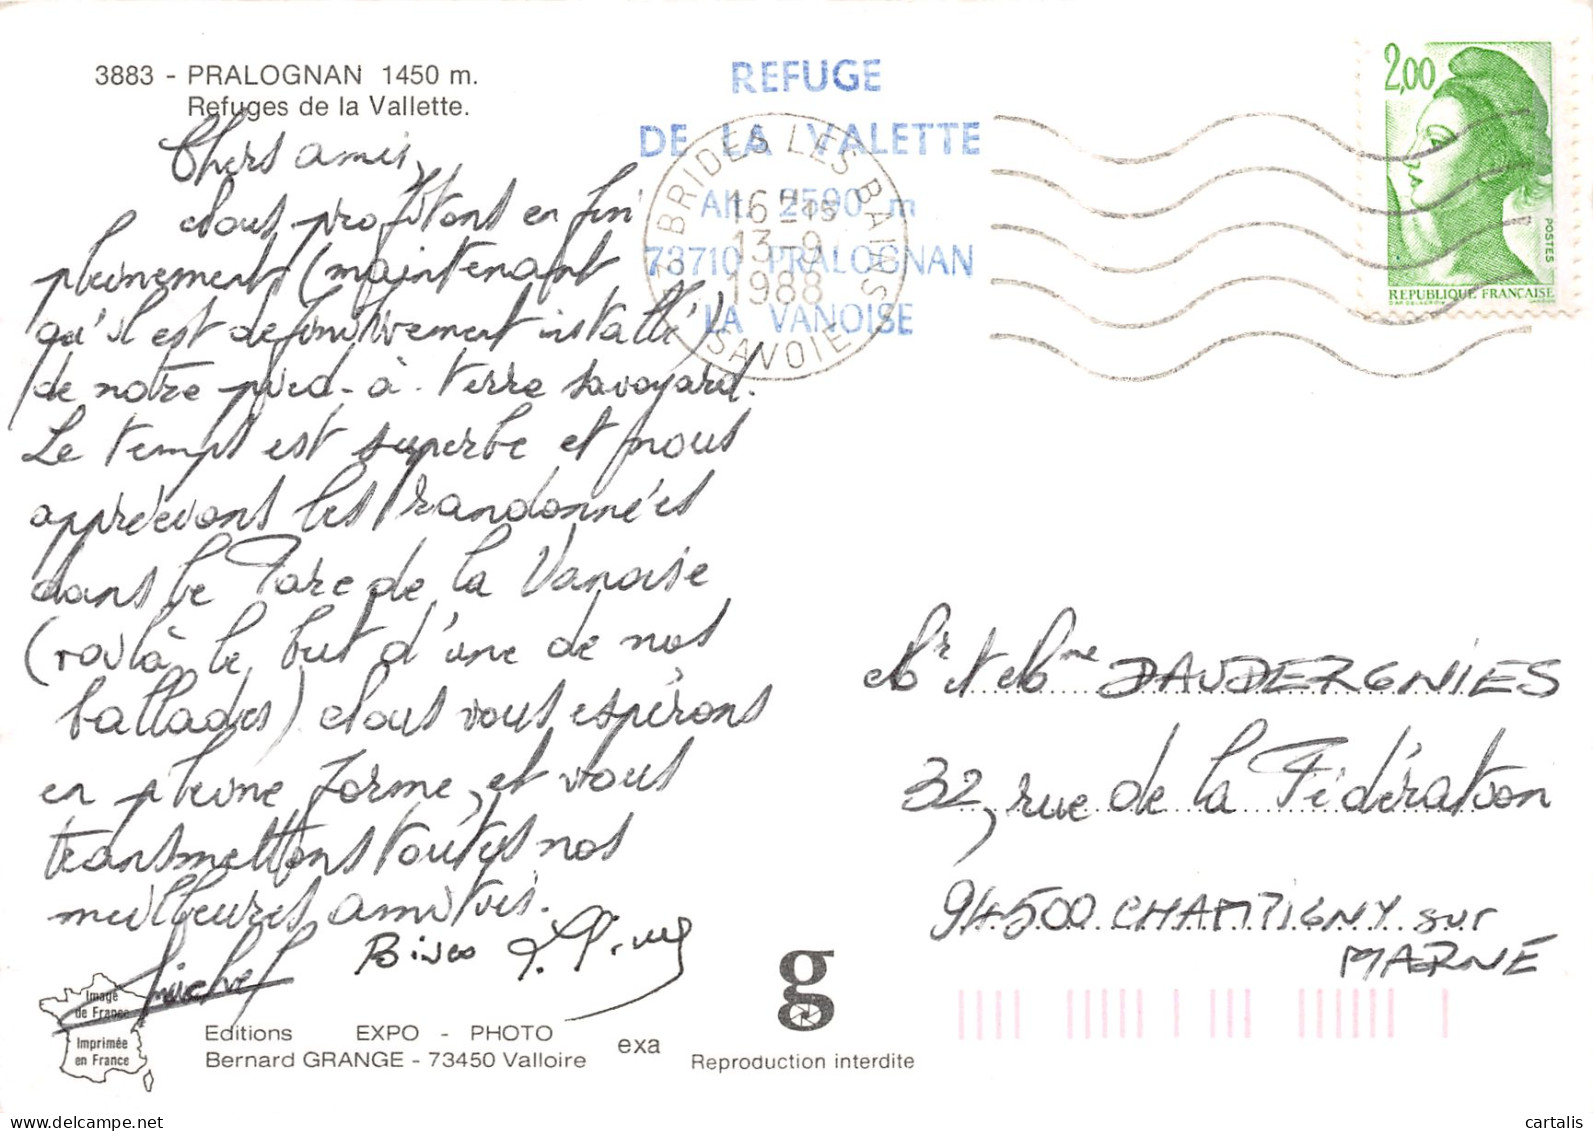 3883 - PRALOGNAN 1450 m.
Refuges de la Vallette.
Chers amis,
Nous profitons en fin
pleinement (maintenant
qu'il est definitivement installé)
de notre pied-à-terre savoyard.
Le temps est superbe et nous
apprécions les randonnées
dans le Parc de la Vanoise
(voilà le but d'une de nos
ballades) Nous vous espérons
en pleine forme, et vous
transmettons toutes nos
meilleures amitiés.
Michel
REFUGE
DE LA VALETTE
Alt. 2590 m
73710 PRALOGNAN
LA VANOISE
BRIDES LES BAINS
16 H 15
13-9
1988
SAVOIE
2,00
POSTES
REPUBLIQUE FRANÇAISE
Mr et Mme DAUDERGNIES
32, rue de la Fédération
94500 CHAMPIGNY sur
MARNE
Image
de France
Imprimée
en France
Editions EXPO - PHOTO
Bernard GRANGE - 73450 Valloire
exa
g
Reproduction interdite
delcampe.net
cartalis